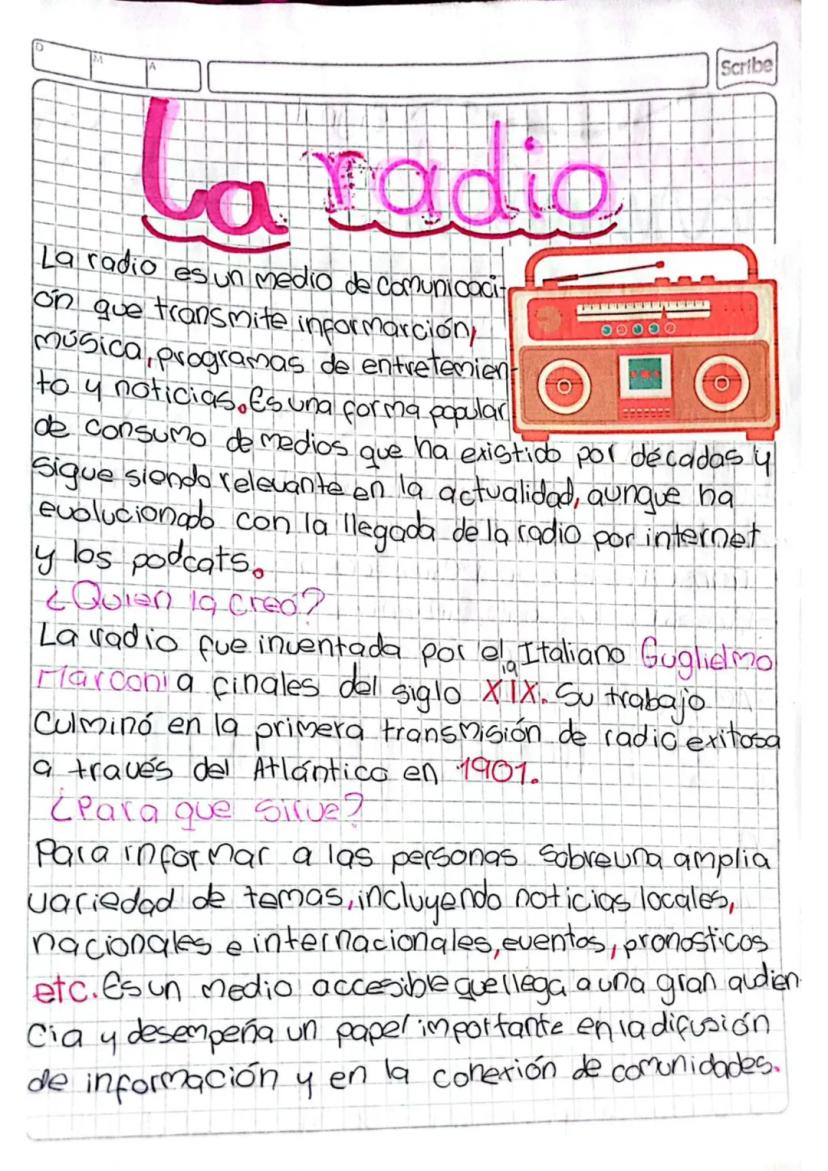 D
M
A
Scribe
La radio
La radio es un medio de comunicaci-
ón que transmite informarción,
música, programas de entretemien-
to y noticias. Es una forma popular
de consumo de medios que ha existido por décadas y
sigue siendo relevante en la actualidad, aunque ha
evolucionado con la llegada de la radio por internet
y los podcats.
¿Quien la creó?
La radio fue inventada por el Italiano Guglielmo
la
Marconi a finales del siglo XIX. Su trabajo
Culminó en la primera transmisión de radio exitosa
a través del Atlántico en 1901.
¿Para que sirve?
Para informar a las personas sobre una amplia
variedad de temas, incluyendo noticias locales,
nacionales e internacionales, eventos, pronosticos
etc. Es un medio accesible que llega a una gran audien
cia y desempeña un papel importante en la difusión
de información y en la conexión de comunidades.